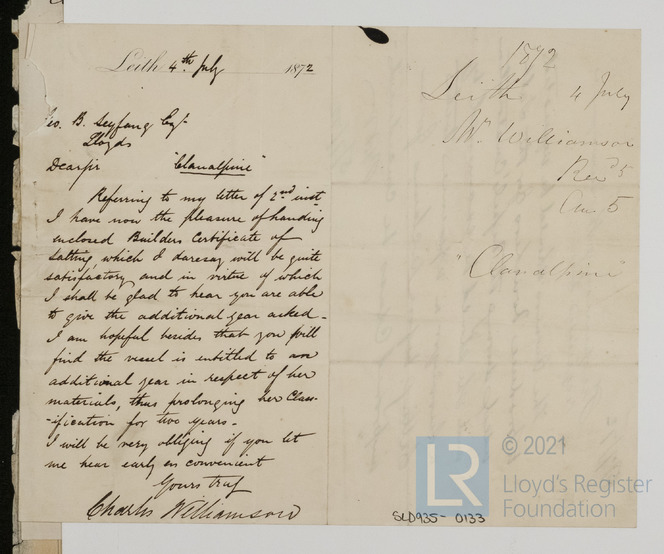 Leith 4th July 1872
Geo. B. Seyfang Esqr
Lloyds
Dear Sir "Clanalpine"
Referring to my letter of 2nd inst
I have now the pleasure of handing
enclosed Builders Certificate of
Salting which I daresay will be quite
satisfactory and in virtue of which
I shall be glad to hear you are able
to give the additional year asked -
I am hopeful besides that you will
find the vessel is entitled to an
additional year in respect of her
materials, thus prolonging her Class-
-ification for two years -
I will be very obliging if you let
me hear early as convenient
Yours truly
Charles Williamson
1872
Leith 4 July
Mr Williamson
Recd 5
Ans. 5
"Clanalpine"
LR
© 2021
Lloyd's Register
Foundation
SLD935-0133